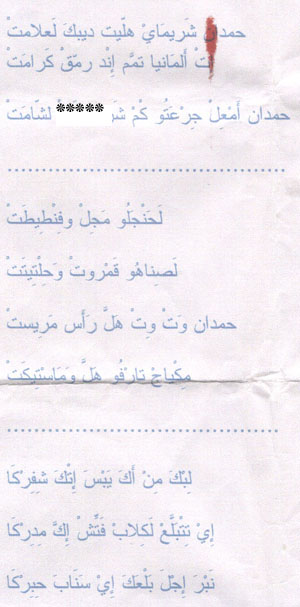 حمدان شَريمَايْ هلّيت ديبكَ لَعلامتْ
تُ ألمانيا تمَّم إنْد رمَقْ كَرامَتْ
حمدان أَمْعِلْ جِرْعَتُو كُمْ ***** لشّامَتْ
لَحَنْجلُو مَجِلْ وفِنْطيطَتْ
لَصِناهُو قَمْروتْ وَحِلْتِيتَتْ
حمدان وَتْ وِتْ هَلَّ رَأَس مَريستْ
مِكْياجْ تارْفُو هَلَّ وَمَاسْتِيكَتْ
لِبْكَ مِنْ أَكَ يَبْسَ إتْكَ شَفِرْكَا
إيْ تِتْبَلَّعْ لَكِلابْ فَتِّشْ إكَّ مدِرْكَا
نَبْرَ إجْلَ بَلْعَكَ إيْ سَنَابَ حبِركَا